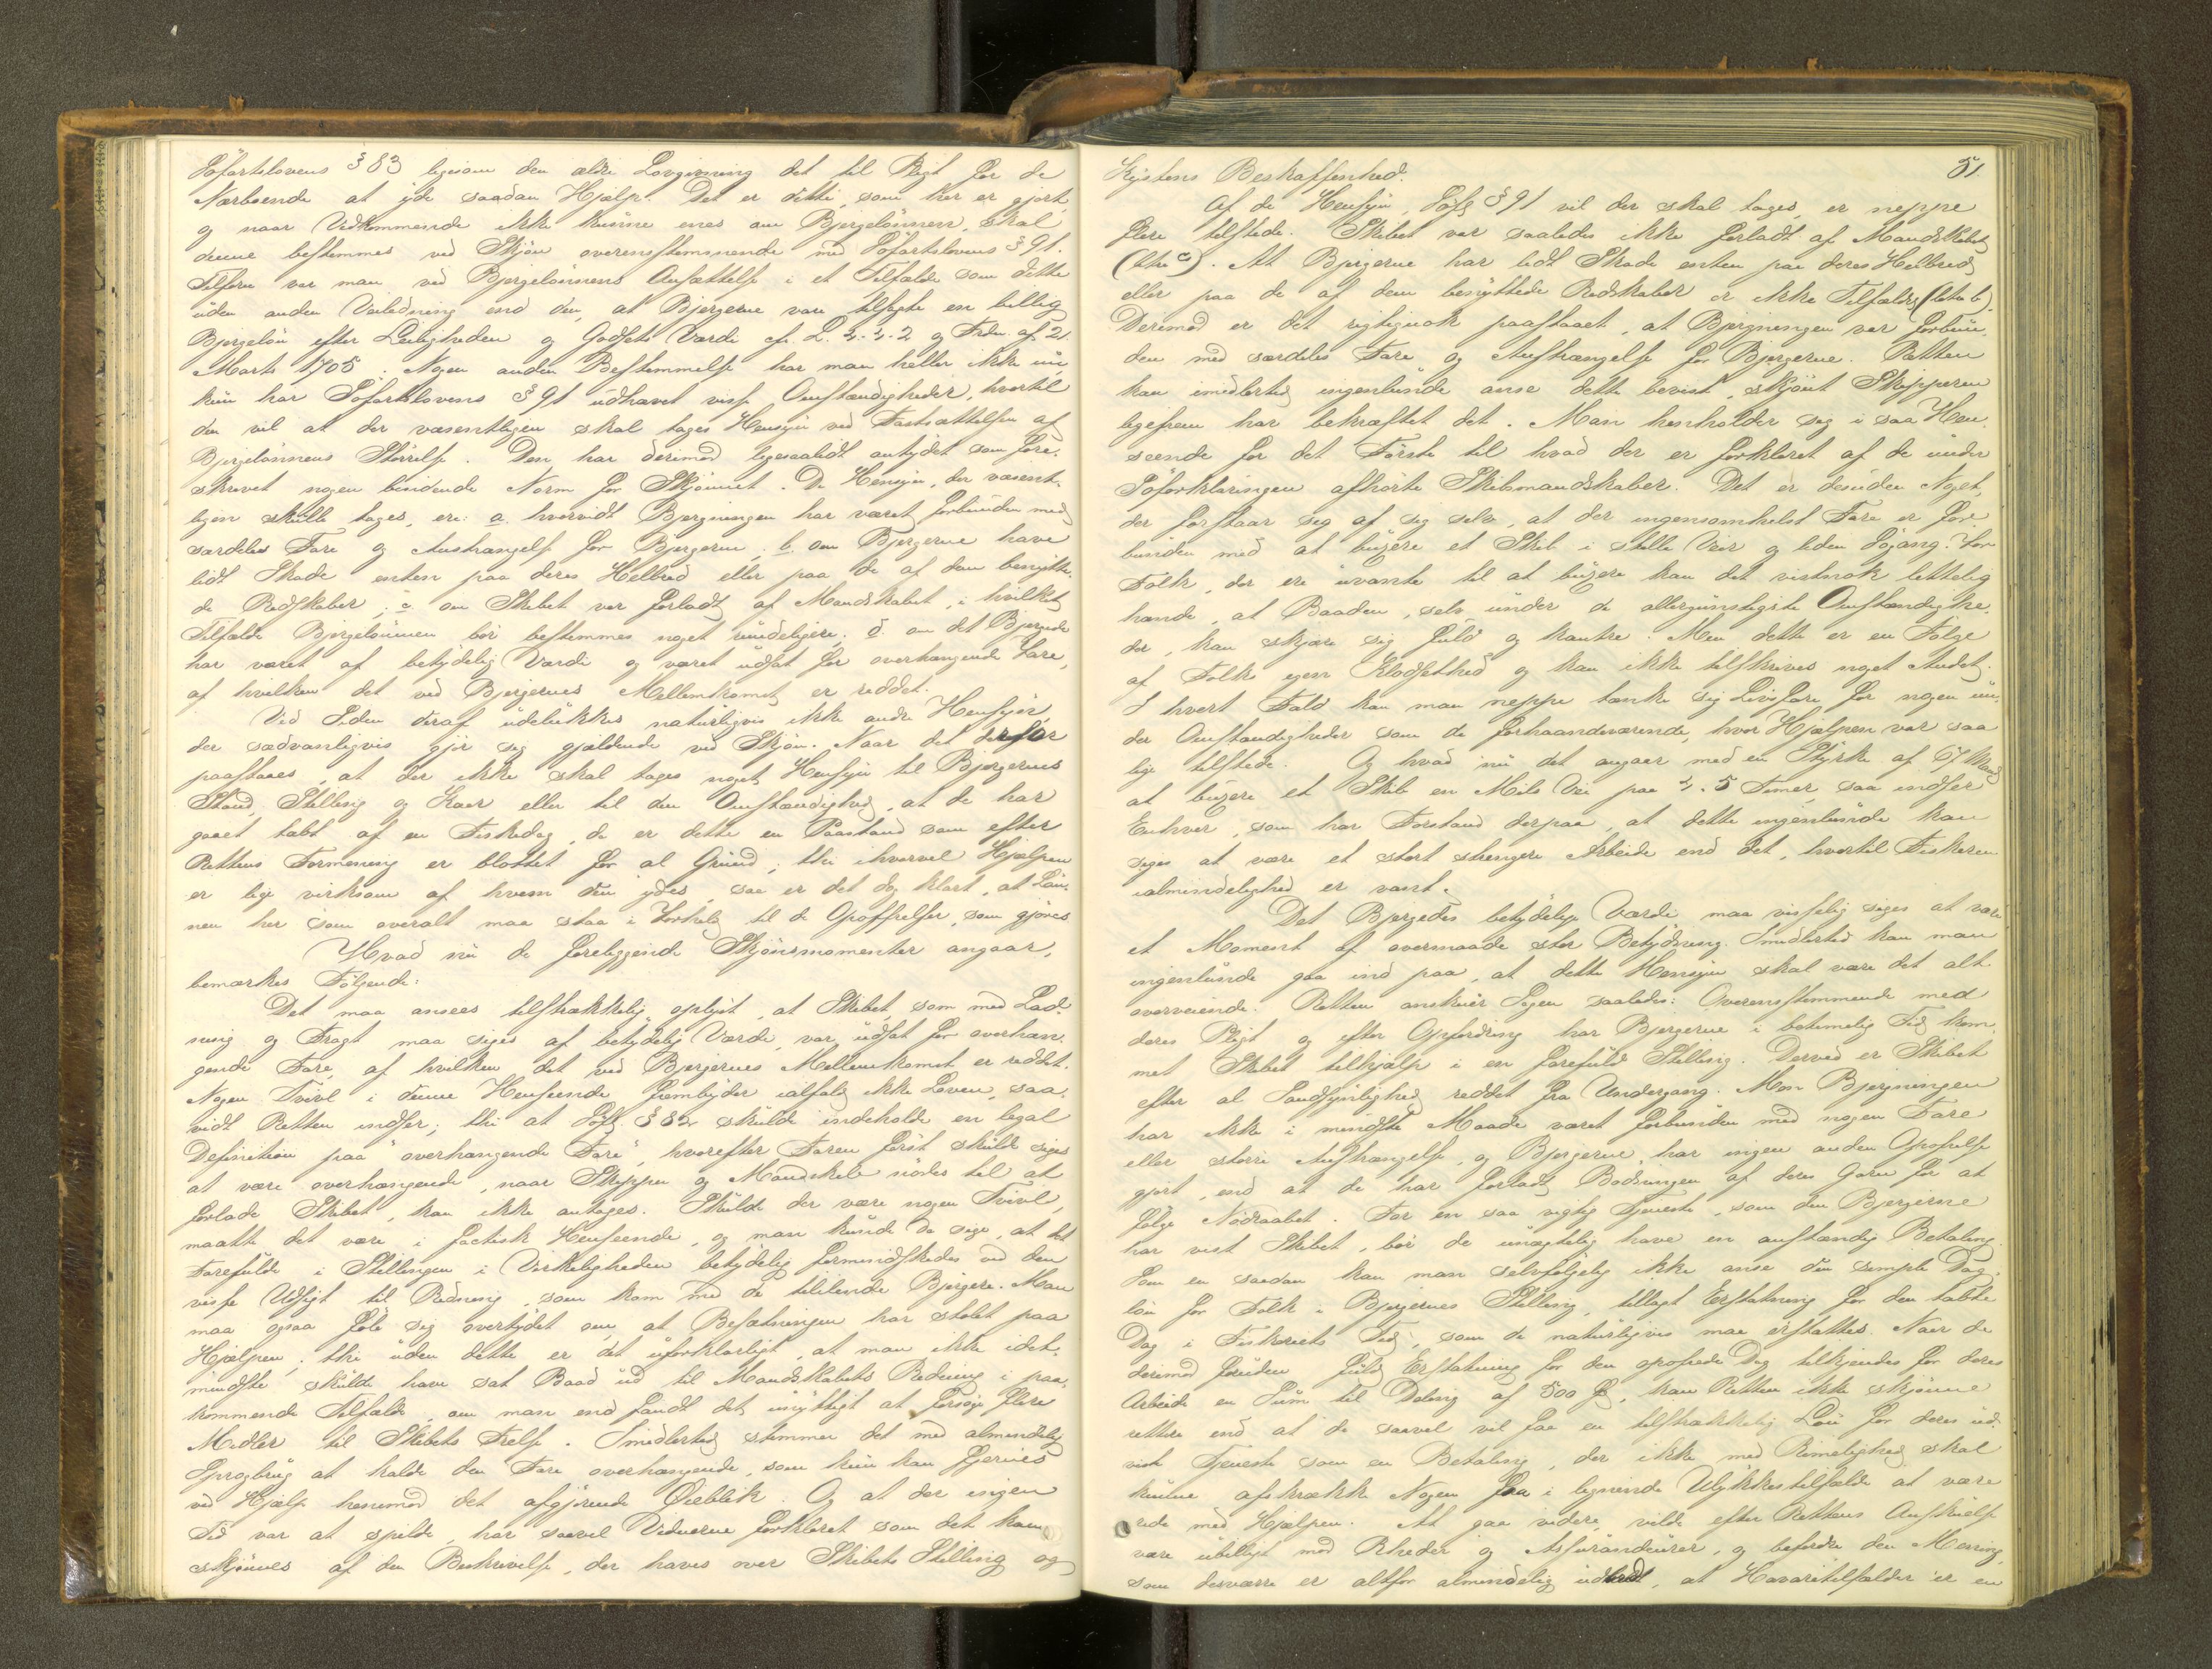 Söfartslovens § 83 ligesom den ældre Lovgivning det til Pligt for de
Nærboende at yde saadan Hjælp. Det er dette, som her er gjort,
og naar Vedkommende ikke kunne enes om Bjergelönnen, skal
denne bestemmes ved Skjön overensstemmende med Söfartslovens § 91.
Tilforn var man ved Bjergelönnens Ansættelse i et Tilfælde som dette
uden anden Veiledning end den, at Bjergerne vare tilsagte en billig
Bjergelön efter Leiligheden og Godsets Værdi cfr. L. 4-4-2 og Frdn. af 21
Marts 1705. Nogen anden Bestemmelse har man heller ikke nu,
kun har Söfartslovens § 91 udhævet visse Omstændigheder, hvortil
den vil at der væsentligen skal tages Hensyn ved Fastsættelsen af
Bjergelönnens Störrelse. Den har derimod ligesaalidt antydet som fore-
skrevet nogen bindende Norm for Skjönnet. De Hensyn, der væsent-
ligen skulle tages, ere: a. hvorvidt Bjergningen har været forbunden med
særdeles Fare og Anstrængelse for Bjergerne, b. om Bjergerne have
lidt Skade enten paa deres Helbred eller paa de af dem benytte-
de Redskaber; c. om Skibet var forladt af Mandskabet, i hvilket
Tilfælde Bjergelönnen bör bestemmes noget rundeligere; d. om det Bjergede
har været af betydelig Værdi og været udsat for overhængende Fare,
af hvilken det ved Bjergernes Mellemkomst er reddet.
Ved Siden deraf udelukkes naturligvis ikke andre Hensyn,
der sædvanligvis gjör sig gjældende ved Skjön. Naar det derfor
paastaaes, at der ikke skal tages noget Hensyn til Bjergernes
Stand, Stilling og Kaar eller til den Omstændighed, at de har
gaaet tabt af en Fiskedag, da er dette en Paastand som efter
Rettens Formening er blottet for al Grund; thi ihvorvel Hjælpen
er lige virksom af hvem den ydes, saa er det dog klart, at Lön-
nen her som overalt maa staa i Forhold til de Opoffrelser, som gjöres
Hvad nu de foreliggende Skjönsmomenter angaar,
bemærkes Fölgende:
Det maa ansees tilstrækkelig oplyst, at Skibet, som med Lad-
ning og Fragt maa siges af betydelig Værdi, var udsat for overhæn-
gende Fare, af hvilken det ved Bjergernes Mellemkomst er reddet.
Nogen Tvivl i denne Henseende frembyder ialfald ikke Loven, saa-
vidt Retten indser; thi at Söfl. § 82 skulde indeholde en legal
Definition paa "overhængende Fare", hvorefter Faren först skulde siges
at være overhængende, naar Skipper og Mandskab nödes til at
forlade Skibet, kan ikke antages. Skulde der være nogen Tvivl,
maatte det være i factisk Henseende, og man kunde da sige, at det
Farefulde i Stillingen i Virkeligheden betydelig formindskedes ved den
visse Udsigt til Redning, som kom med de tililende Bjergere. Man
maa ogsaa föle sig overtydet om, at Besætningen har stolet paa
Hjælpen; thi uden dette er det uforklarligt, at man ikke idet-
mindste skulde have sat Baad ud til Mandskabets Redning i paa-
kommende Tilfælde, om man end fandt det unyttigt at forsöge flere
Midler til Skibets Frelse. Imidlertid stemmer det med almindelig
Sprogbrug at kalde den Fare overhængende, som kun kan fjernes
ved Hjælp henimod det afgjörende Öieblik. Og at der ingen
Tid var at spilde, har saavel Vidnerne forklaret som det kan
skjönnes af den Beskrivelse, der haves over Skibets Stilling og
51.
Kystens Beskaffenhed.
Af de Hensyn, Söfl. § 91 vil der skal tages, er neppe
flere tilstede. Skibet var saaledes ikke forladt af Mandskabet
(litr. c). At Bjergerne har lidt Skade enten paa deres Helbred
eller paa de af dem benyttede Redskaber er ikke Tilfældet (litra b).
Derimod er det rigtignok paastaaet, at Bjergningen var forbun-
den med særdeles Fare og Anstrængelse for Bjergerne. Retten
kan imidlertid ingenlunde anse dette bevist, skjönt Skipperen
ligefrem har bekræftet det. Man henholder sig i saa Hen-
seende for det Förste til hvad der er forklaret af de under
Söforklaringen afhörte Skibsmandskaber. Det er desuden Noget,
der forstaar sig af sig selv, at der ingensomhelst Fare er for-
bunden med at bugsere et Skib i stille Veir og liden Sögang. For
Folk, der ere uvante til at bugsere kan det vistnok lettelig
hænde, at Baaden, selv under de allergunstigste Omstændighe-
der, kan skjære sig fuld og kantre. Men dette er en Fölge
af Folks egen Klodsethed og kan ikke tilskrives noget Andet.
I hvert Fald kan man neppe tænke sig Livsfare for nogen un-
der Omstændigheder som de forhaandenværende, hvor Hjælpen var saa
lige tilstede. Og hvad nu det angaar med en Styrke af 67 Mand
at bugsere et Skib en Miils Vei paa 4-5 Timer, saa indser
Enhver, som har Forstand derpaa, at dette ingenlunde kan
siges at være et stort strengere Arbeide end det, hvortil Fiskeren
ialmindelighed er vant.
Det Bjergedes betydelige Værdi maa visselig siges at være
et Moment af overmaade stor Betydning. Imidlertid kan man
ingenlunde gaa ind paa, at dette Hensyn skal være det alt
overveiende. Retten anskuer Sagen saaledes: Overensstemmende med
deres Pligt og efter Opfordring har Bjergerne i betimelig Tid kom-
met Skibet tilhjælp i en farefuld Stilling. Derved er Skibet
efter al Sandsynlighed reddet fra Undergang. Men Bjergningen
har ikke i mindste Maade været forbunden med nogen Fare
eller större Anstrængelse, og Bjergerne har ingen anden Opofrelse
gjort, end at de har forladt Bödningen af deres Garn for at
fölge Nödraabet. For en saa vigtig Tjeneste, som den Bjergerne
har vist Skibet, bör de unægtelig have en anstændig Betaling.
Som en saadan kan man selvfölgelig ikke anse den simple Dag-
lön for Folk i Bjergernes Stilling, tillagt Erstatning for den tabte
Dag i Fiskeriets Tid, som de naturligvis maa erstattes. Naar de
derimod foruden fuld Erstatning for den opofrede Dag tilkjendes for deres
Arbeide en Sum til Deling af 500 Spd., kan Retten ikke skjönne
rettere end at de saavel vil faa en tilstrækkelig Lön for deres ud-
viste Tjeneste som en Betaling, der ikke med Rimelighed skal
kunne afskrække Nogen fra i lignende Ulykkestilfælde at være
rede med Hjælpen. At gaa videre, vilde efter Rettens Anskuelse
være ubilligt mod Rheder og Assurandeurer, og befordre den Mening,
som desværre er altfor almindelig udbredt, at Havaritilfælder er en